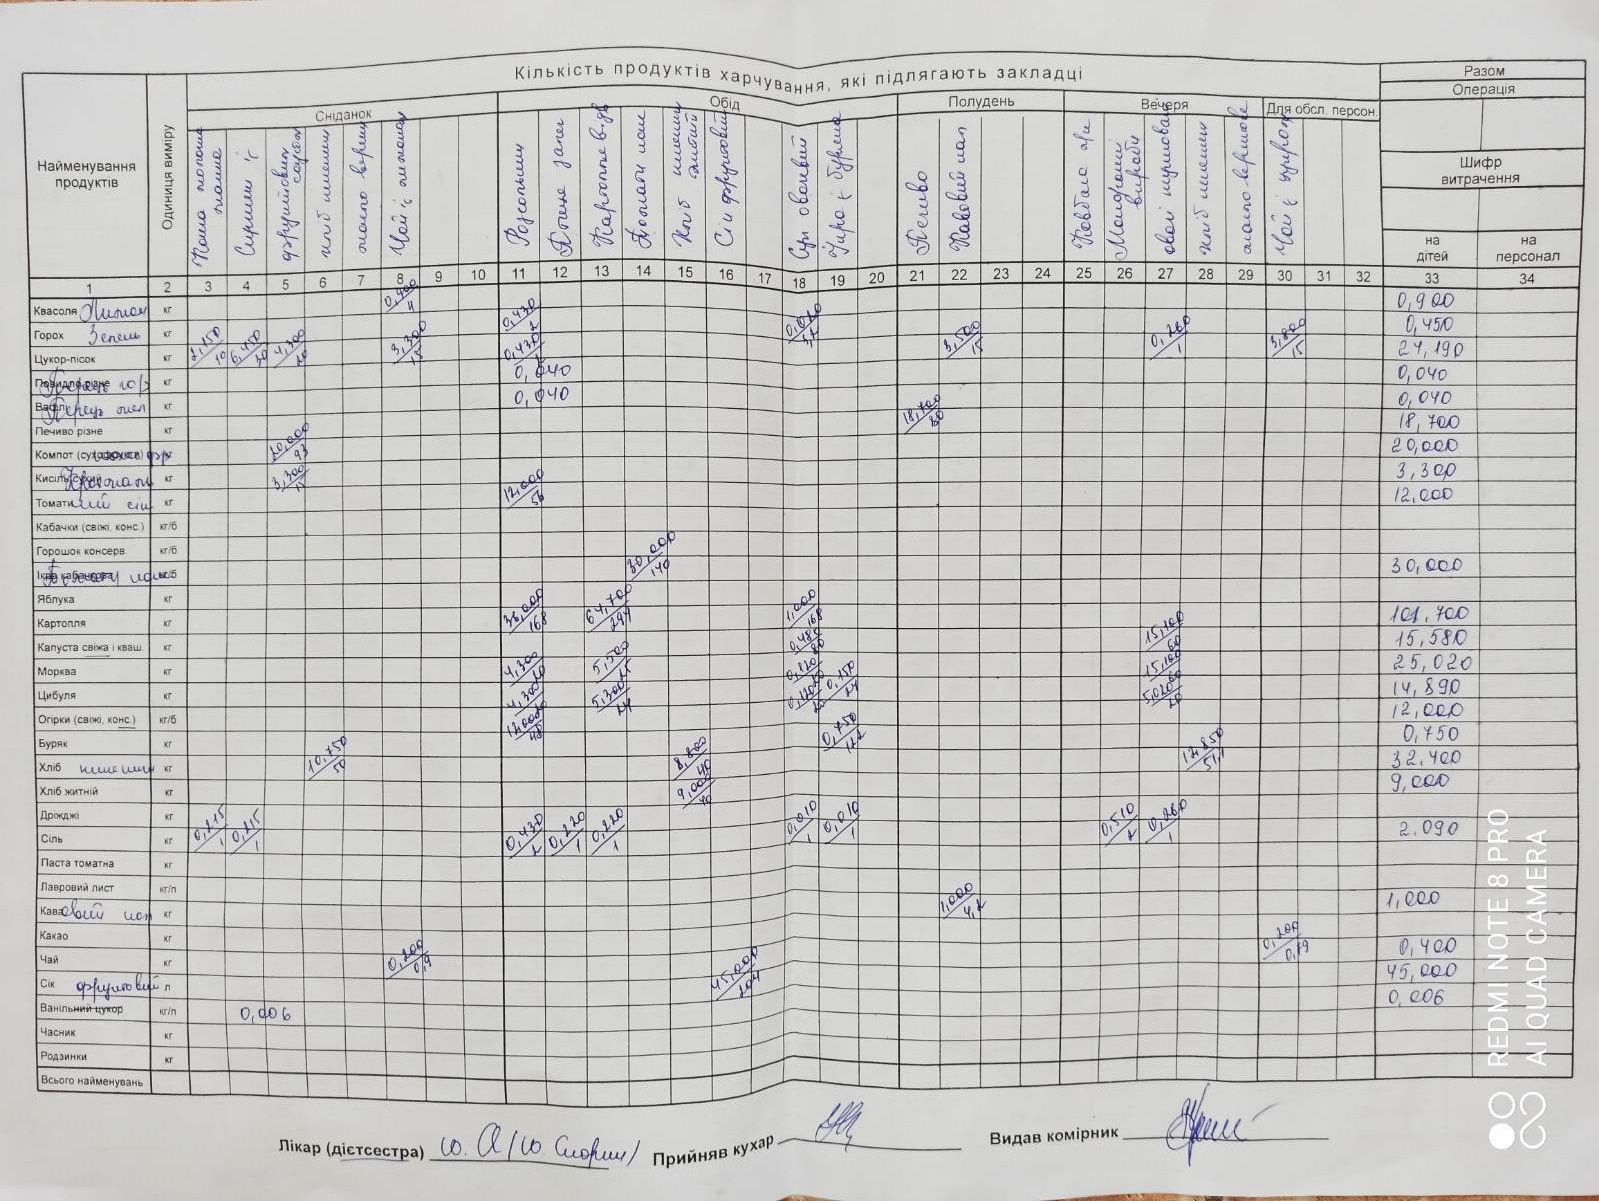 Кількість продуктів харчування, які підлягають закладці
Разом
Операція
Сніданок
Обід
Полудень
Вечеря
Для обсл. персон.
Найменування продуктів
Одиниця виміру
Шифр витрачення
на дітей
на персонал
Каша молочна
Сирники із
фруктовим соусом
хліб пшенич
масло вершк
Чай із лимоном
Розсольник
Печеня запеч
Картопля відв
Хліб пшенич житній
Сік фруктовий
Суп овочевий
Ікра із буряка
Печиво
Кавовий нап
Ковбаса
Макаронні вироби
овочі тушковані
хліб пшенич
масло вершкове
Чай із цукром
1 2 3 4 5 6 7 8 9 10 11 12 13 14 15 16 17 18 19 20 21 22 23 24 25 26 27 28 29 30 31 32 33 34
Квасоля Лимон кг 0,900/4 0,900
Горох Зелень кг 0,430/2 0,020 0,450
Цукор-пісок кг 2,150/10 6,450/30 4,300/20 3,300/15 0,430/2 3,500/15 0,260/1 3,800/15 24,190
Повидло різне кг 0,040 0,040
Вафлі Перець мел кг 0,040 0,040
Печиво різне кг 18,700/80 18,700
Компот (сухофрукти) кг 20,000/93 20,000
Кисіль сухий Крохмаль кг 3,300 3,300
Томатний сік кг 12,000/56 12,000
Кабачки (свіжі, конс.) кг/б
Горошок консерв. кг/б
Ікра кабачкова кг/б 30,000/140 30,000
Яблука кг
Картопля кг 36,000/168 64,700/294 1,000/168 101,700
Капуста свіжа і кваш. кг 0,480/80 15,100/60 15,580
Морква кг 4,300/20 5,500/25 0,120/20 15,100/60 25,020
Цибуля кг 4,300/20 5,300/24 0,120/20 0,150/24 5,020/20 14,890
Огірки (свіжі, конс.) кг/б 12,000 12,000
Буряк кг 0,750/122 0,750
Хліб пшенич кг 10,750/50 8,800/40 12,850/51,1 32,400
Хліб житній кг 9,000/40 9,000
Дріжджі кг
Сіль кг 0,215/1 0,215/1 0,430/2 0,220/1 0,220/1 0,010/1 0,010/1 0,510/2 0,260/1 2.090
Паста томатна кг
Лавровий лист кг/п
Кавовий нап кг 1,000/4,2 1,000
Какао кг
Чай кг 0,200/0,9 0,200/0,79 0,400
Сік фруктовий л 45,000/204 45,000
Ванільний цукор кг/п 0,006 0,006
Часник кг
Родзинки кг
Всього найменувань
Лікар (дієтсестра)
Прийняв кухар
Видав комірник
REDMI NOTE 8 PRO
AI QUAD CAMERA